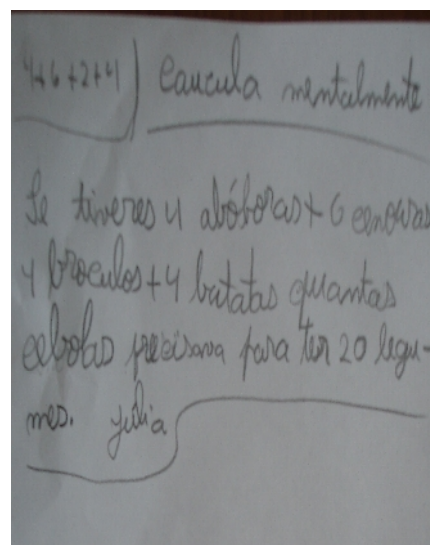 4+6+2+4) Caucula mentalmente
Se tiveres 4 abóboras+6 cenouras
4 broculos+4 batatas quantas
cebolas precisava para ter 20 legu-
mes. julia